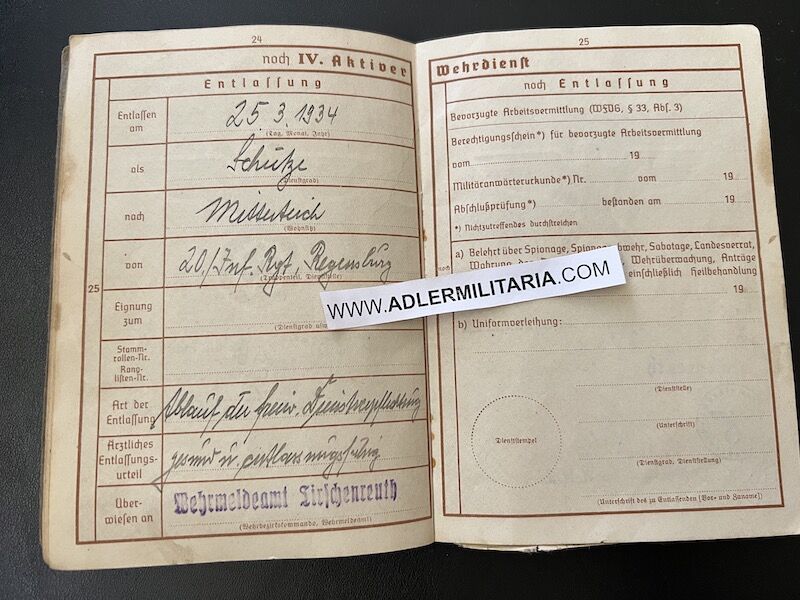 24
noch IV. Aktiver
Entlassung
Entlassen am
25. 3. 1934
(Tag, Monat, Jahr)
als
Schütze
(Dienstgrad)
nach
Mitterteich
(Wohnsitz)
von
20./Inf. Rgt. Regensburg
(Truppenteil, Dienststelle)
25
Eignung zum
(Dienstgrad usw.
Stamm-
rollen-Nr.
Rang-
listen-Nr.
Art der
Entlassung
Ablauf der freiw. Dienstverpflichtung
Ärztliches
Entlassungs-
urteil
gesund u. entlassungsfähig
Über-
wiesen an
Wehrmeldeamt Tirschenreuth
(Wehrbezirkskommando, Wehrmeldeamt)
25
Wehrdienst
noch Entlassung
Bevorzugte Arbeitsvermittlung (WFVG, § 33, Abs. 3)
Berechtigungsschein*) für bevorzugte Arbeitsvermittlung
vom 19
Militäranwärterurkunde*) Nr. vom 19
Abschlußprüfung*) bestanden am 19
*) Nichtzutreffendes durchstreichen
noch
a) Belehrt über Spionage, Spionageabwehr, Sabotage, Landesverrat,
Wahrung des Wehrüberwachung, Anträge
einschließlich Heilbehandlung
19
WWW.ADLERMILITARIA.COM
b) Uniformverleihung:
(Dienststelle)
(Unterschrift)
Dienststempel
(Dienstgrad, Dienststellung)
(Unterschrift des zu Entlassenden [Vor- und Zuname])